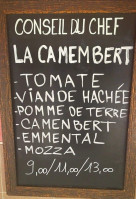 CONSEIL DU CHEF
LA CAMEMBERT
-TOMATE
-VIANDE HACHÉE
-POMME DE TERRE
-CAMENBERT
-EMMENTAL
-MOZZA
9,00/11,00/13,00